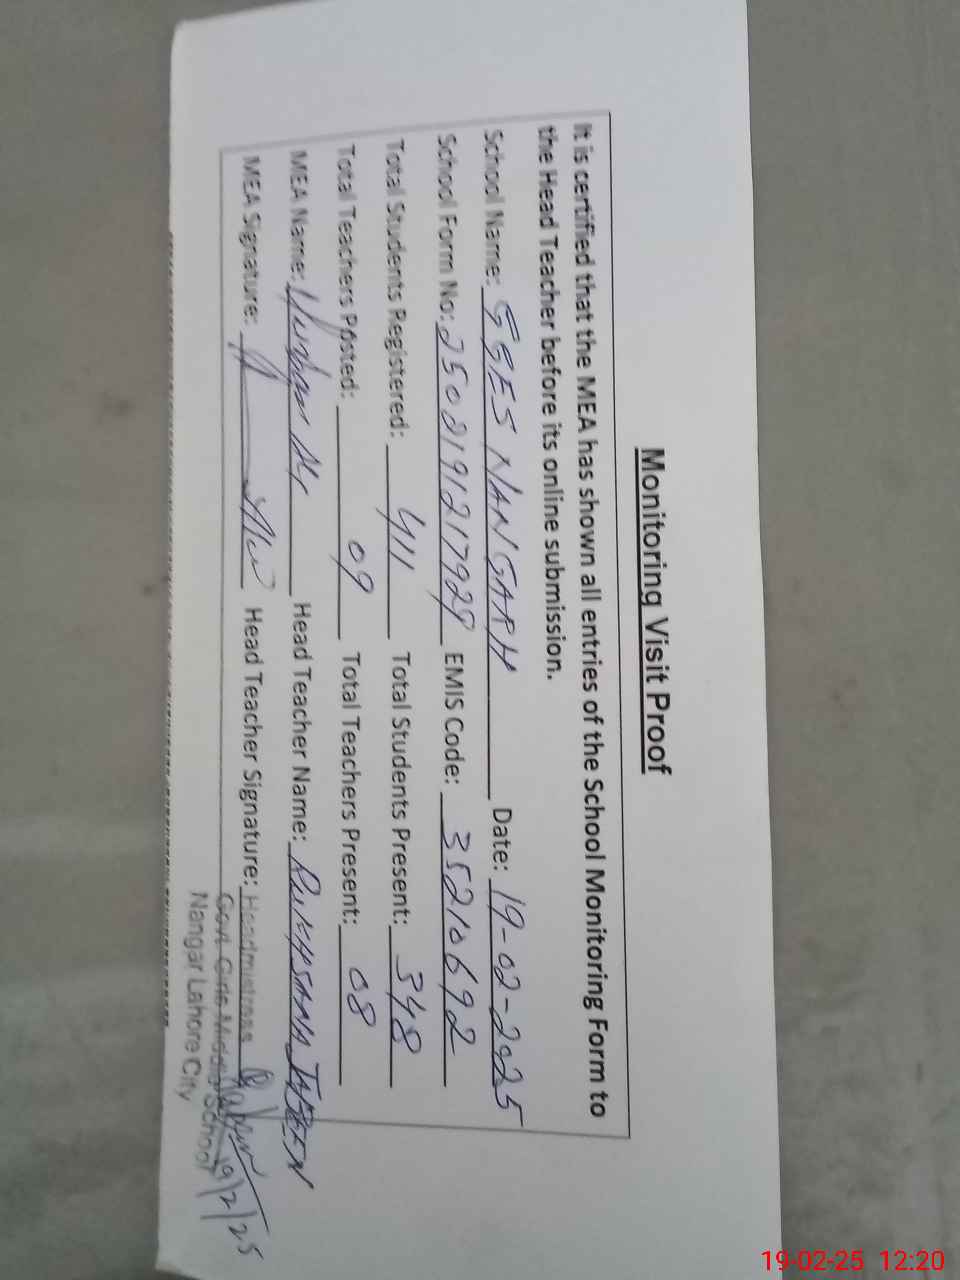 Monitoring Visit Proof
It is certified that the MEA has shown all entries of the School Monitoring Form to
the Head Teacher before its online submission.
School Name: GGES NANGARH Date: 19-02-2025
School Form No: 250219121792 EMIS Code: 35210692
Total Students Registered: 411 Total Students Present: 348
Total Teachers Posted: 09 Total Teachers Present: 08
MEA Name: Head Teacher Name: RUKHSANA JABEEN
MEA Signature: Head Teacher Signature: Headmistress
Govt. Girls Middle School 19/2/25
Nangar Lahore City
19-02-25 12:20